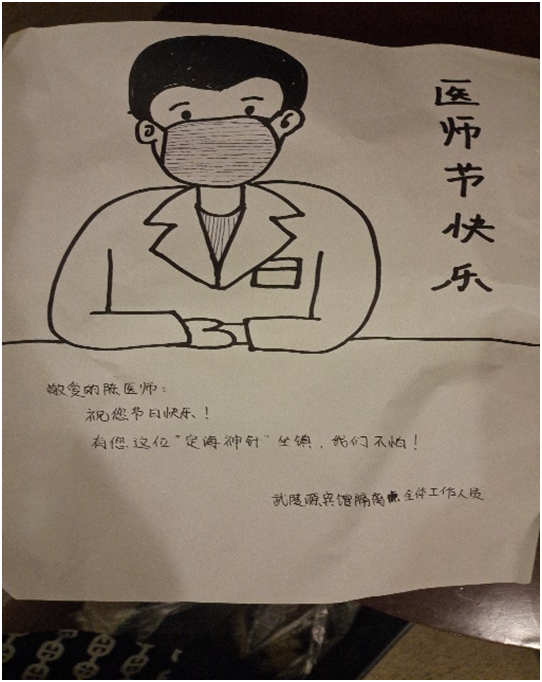 医师节快乐
敬爱的陈医师：
祝您节日快乐！
有您这位“定海神针”坐镇，我们不怕！
武陵源宾馆隔离点全体工作人员